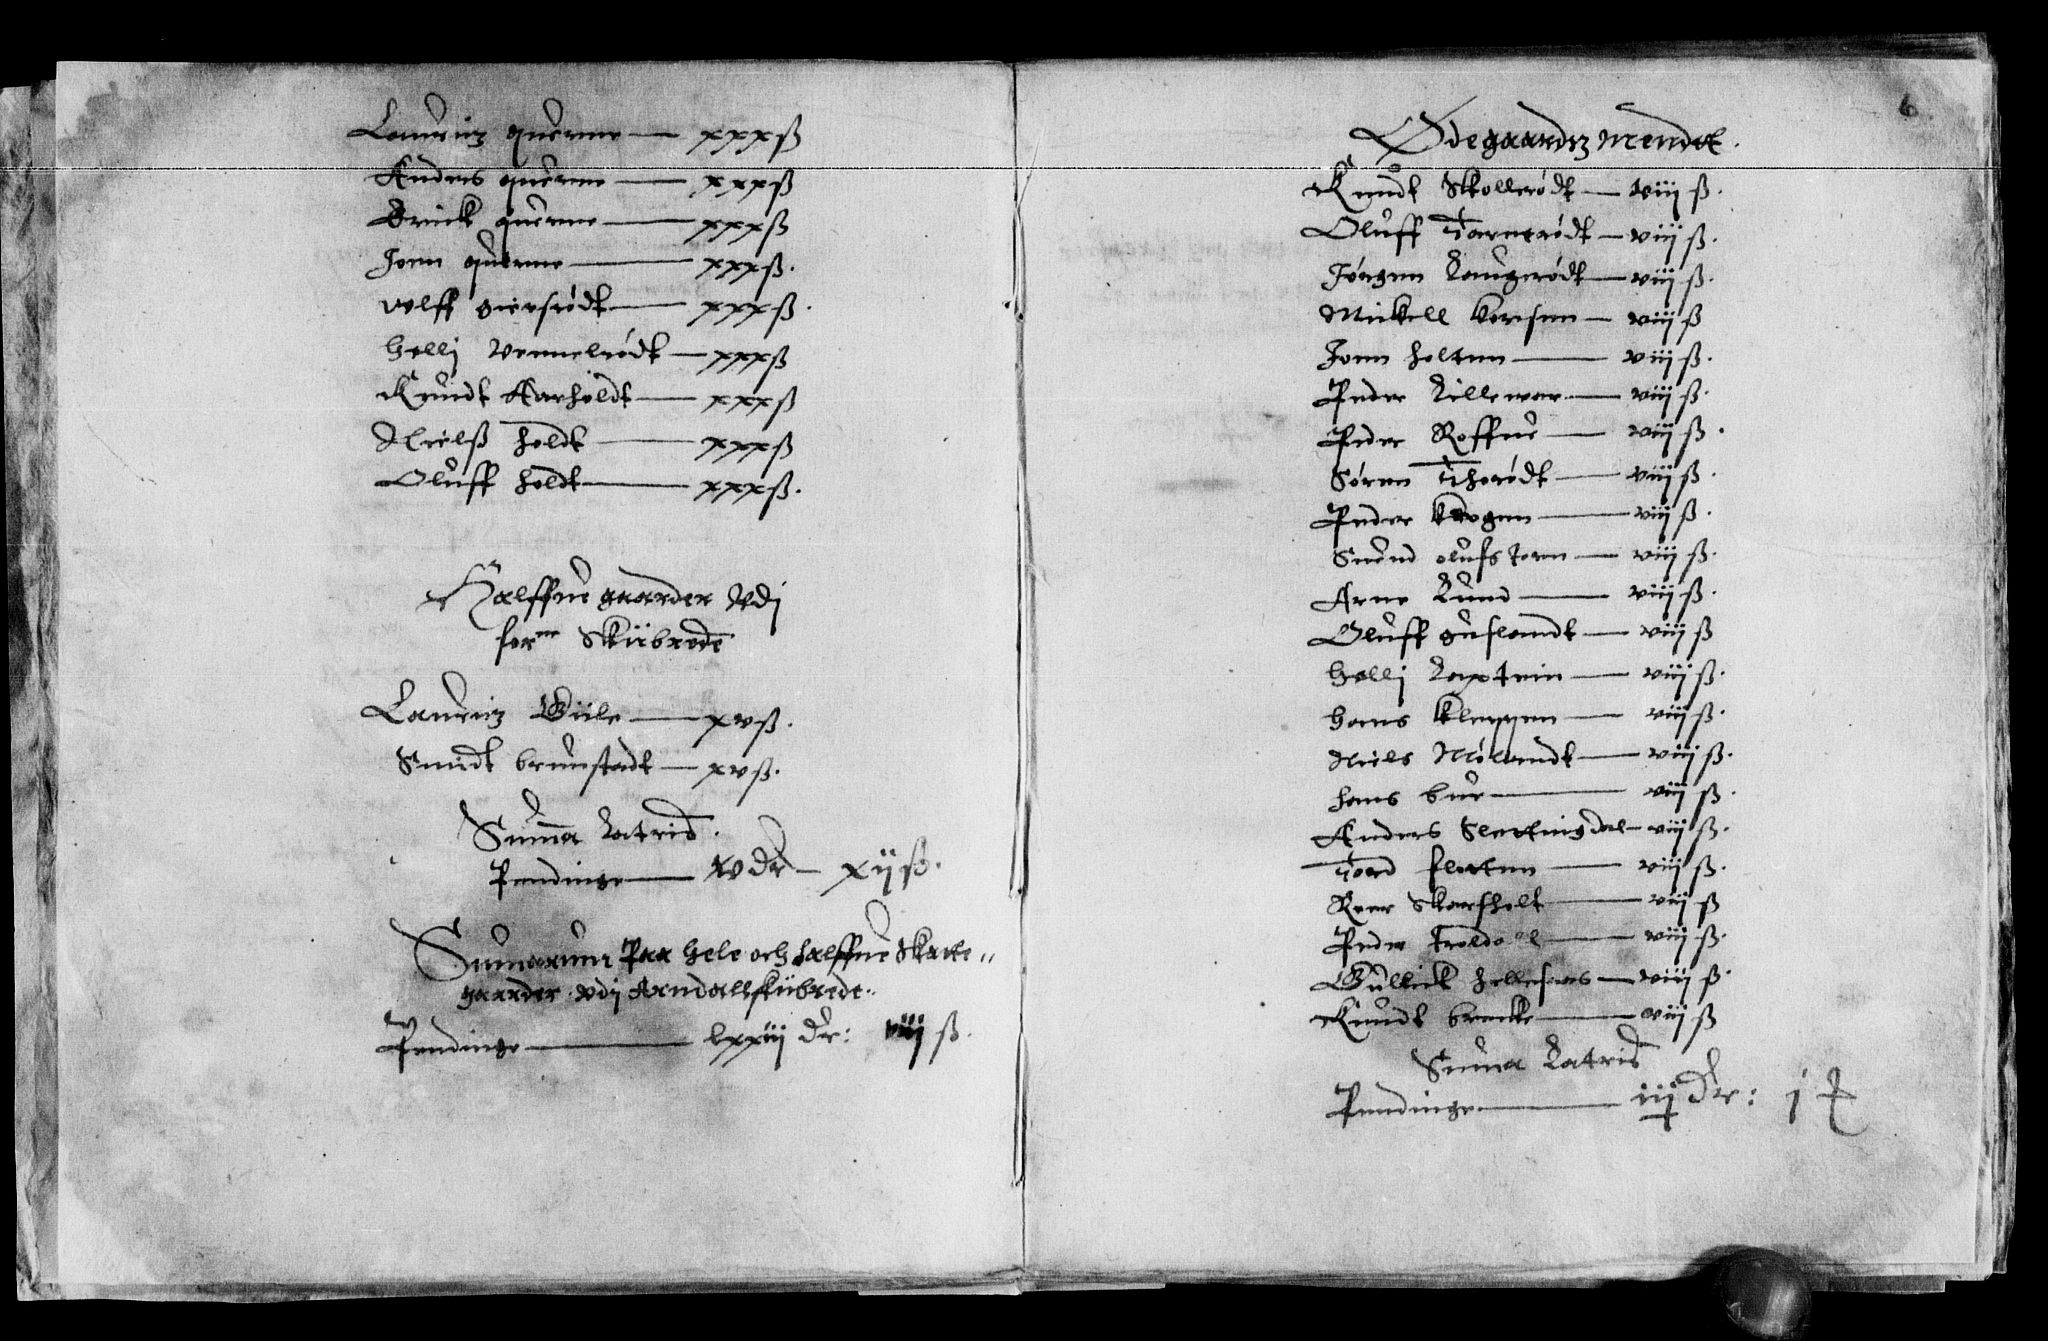 Lauritz querme — xxxß
Anders querme — xxxß
Erick querme — xxxß
Jonn querme — xxxß.
wlff giersrødt — xxxß.
Helli vennelrødt — xxxß
Knudt Aarholdt — xxxß
Nielß holdt — xxxß
Oluff holdt — xxxß.
Halffue gaarder Vdi
for^ne Skiibrede
Lauritz Wiile — xvß.
Suudt brunstadt — xvß.
Summa Latris.
Pendinge — xv dr — xijß.
Sumarum Paa Hele och halffue Skatte„
gaarder vdj Arndallskiibrede.
Pendinge — lxxiij dr: viij ß.
6
Ødegaardtz mendt.
Knudt Skollerødt — viij ß.
Oluff Tarnerødt — viij ß.
Jørgen Laugerødt — viij ß.
Mickell — viij ß
Jonn holtenn — viij ß.
Peder Lillewar — viij ß.
Peder Roffue — viij ß.
Søren Thorødt — viij ß.
Peder — viij ß.
Suend — viij ß.
Arne Lund — viij ß.
Oluff guslandt — viij ß
Helli — viij ß.
Hans Kleppenn — viij ß.
Niels Mølandt — viij ß.
Hans bue — viij ß.
Anders Slettingdal — viij ß.
Tord fløtenn — viij ß.
Reer Skarsholt — viij ß
Peder — viij ß.
Gullick — viij ß.
Knudt brecke — viij ß
Suma Latris
Pendinge — iij dr: j